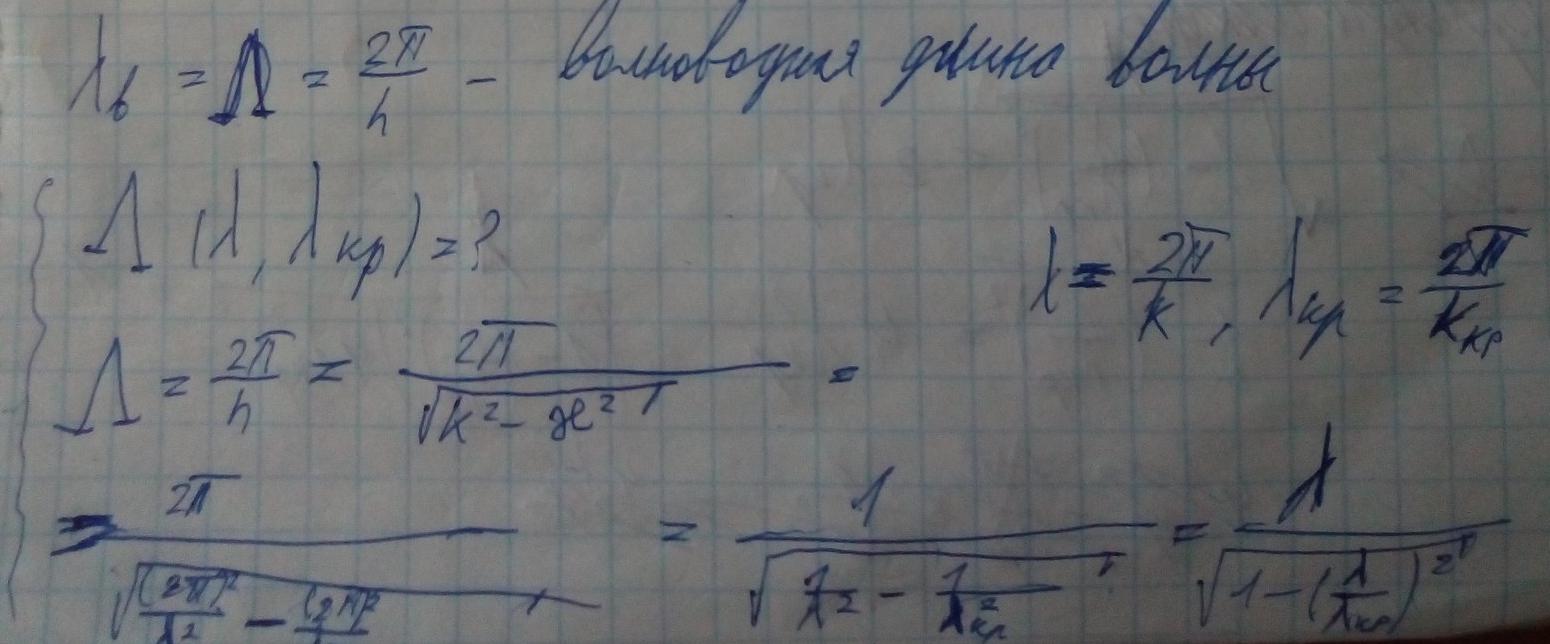 λв = Λ = 2π/h – волноводная длина волны
Λ (λ, λкр) = ?
λ = 2π/k, λкр = 2π/kкр
Λ = 2π/h = 2π/√(k² – æ²) =
= 2π/√((2π)²/λ² – (2π)²/λ) = 1/√(1/λ² – 1/λ²кр) = λ/√(1 – (λ/λкр)²)